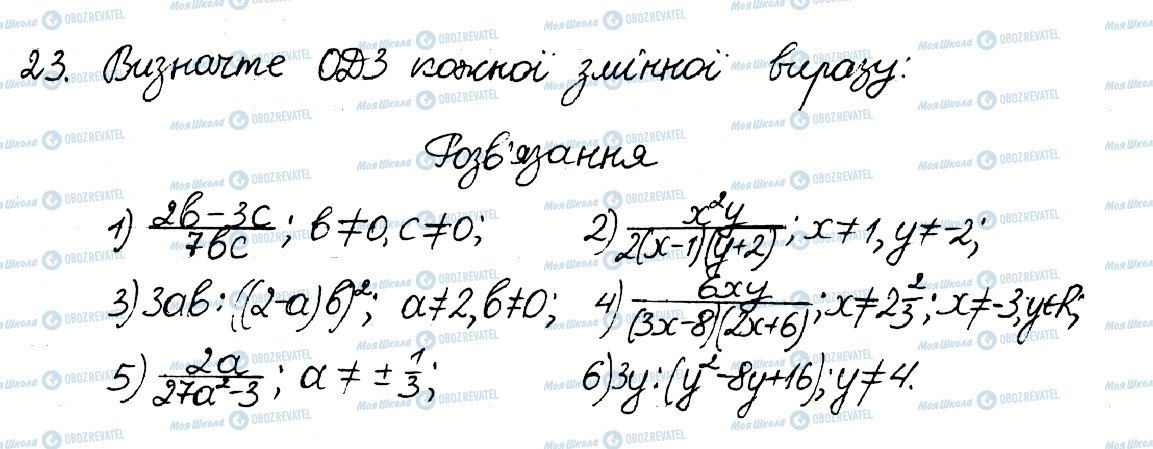 23. Визначте ОДЗ кожної змінної виразу:
Розв'язання
1) (2b-3c)/(7bc); b≠0, c≠0; 2) x²y/(2(x-1)(y+2)); x≠1, y≠-2;
3) 3ab:((2-a)b)²; a≠2, b≠0; 4) 6xy/((3x-8)(2x+6)); x≠2 2/3; x≠-3; y∈R;
5) 2a/(27a²-3); a≠±1/3; 6) 3y:(y²-8y+16); y≠4.